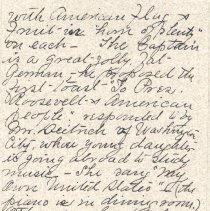 with American Flag &
Fruit in "horn of plenty"
on each – The Captain
is a great-jolly, fat
German, – he proposed the
first toast "To Pres.
Roosevelt & American
people" responded to by
Dr. Dietrich of Washington
City, whose young daughter
is going abroad to study
music, – She sang "My
Own United States" (the
piano is in dining room.)